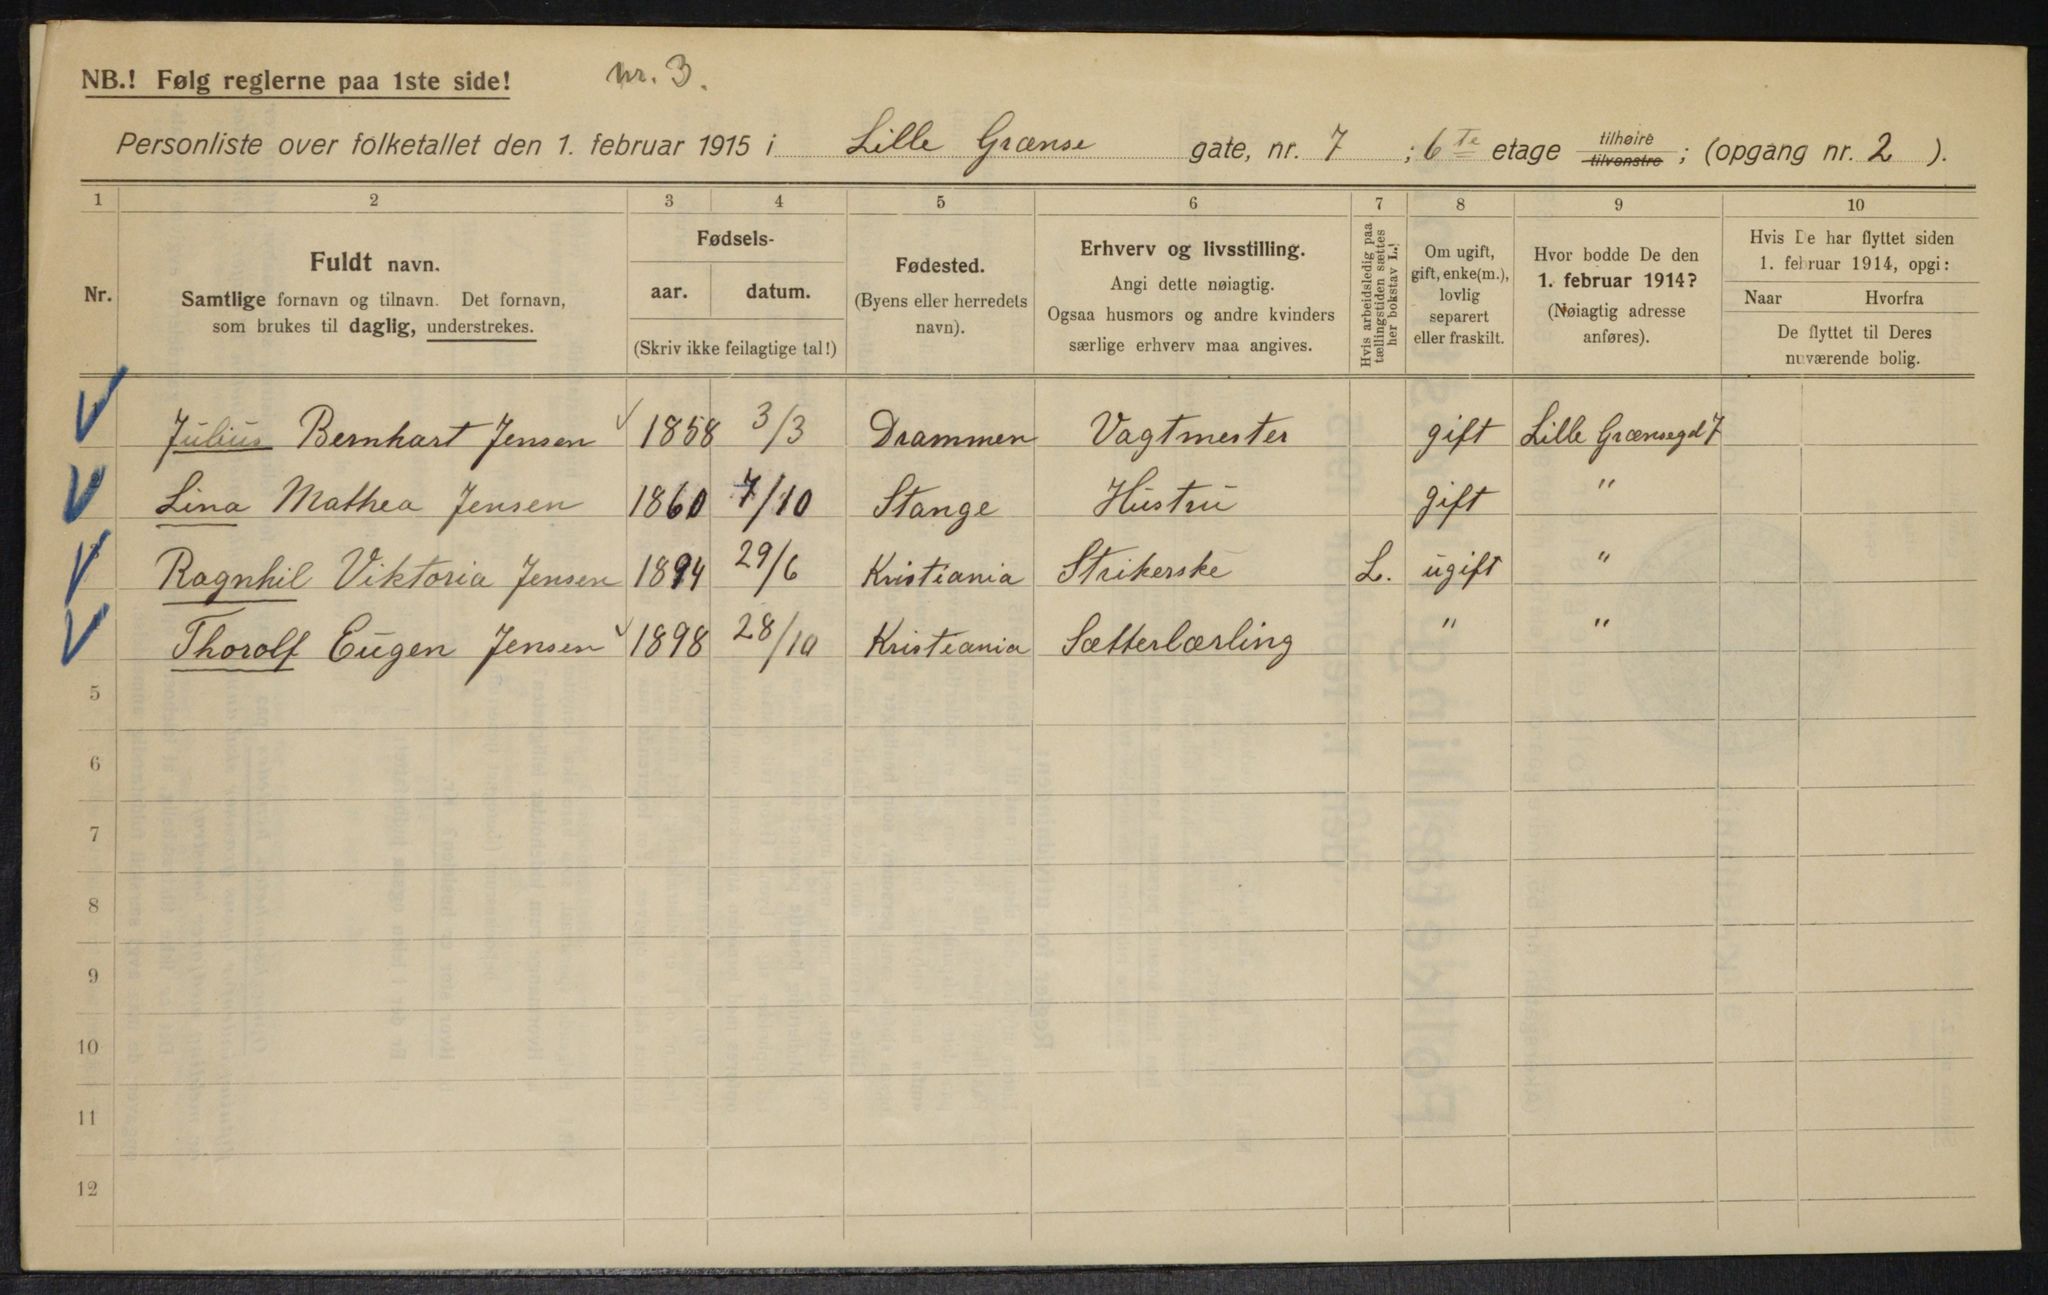 NB.! Følg reglerne paa 1ste side! nr. 3.
Personliste over folketallet den 1. februar 1915 i Lille Grænse gate, nr. 7 ; 6te etage tilhøire tilvenstre ; (opgang nr. 2 ).
1 2 3 4 5 6 7 8 9 10
Nr.
Fuldt navn.
Samtlige fornavn og tilnavn. Det fornavn,
som brukes til daglig, understrekes.
Fødsels-
aar. datum.
(Skriv ikke feilagtige tal!)
Fødested.
(Byens eller herredets
navn).
Erhverv og livsstilling.
Angi dette nøiagtig.
Ogsaa husmors og andre kvinders
særlige erhverv maa angives.
Hvis arbeidsledig paa
tællingstiden sættes
her bokstav L.!
Om ugift,
gift, enke(m.),
lovlig
separert
eller fraskilt.
Hvor bodde De den
1. februar 1914?
(Nøiagtig adresse
anføres).
Hvis De har flyttet siden
1. februar 1914, opgi:
Naar Hvorfra
De flyttet til Deres
nuværende bolig.
Julius Bernhart Jensen 1858 3/3 Drammen Vagtmester gift Lille Grænsegd 7
Lina Mathea Jensen 1860 7/10 Stange Hustru gift "
Ragnhil Viktoria Jensen 1894 29/6 Kristiania Strikerske L. ugift "
Thorolf Eugen Jensen 1898 28/10 Kristiania Sætterlærling " "
5
6
7
8
9
10
11
12